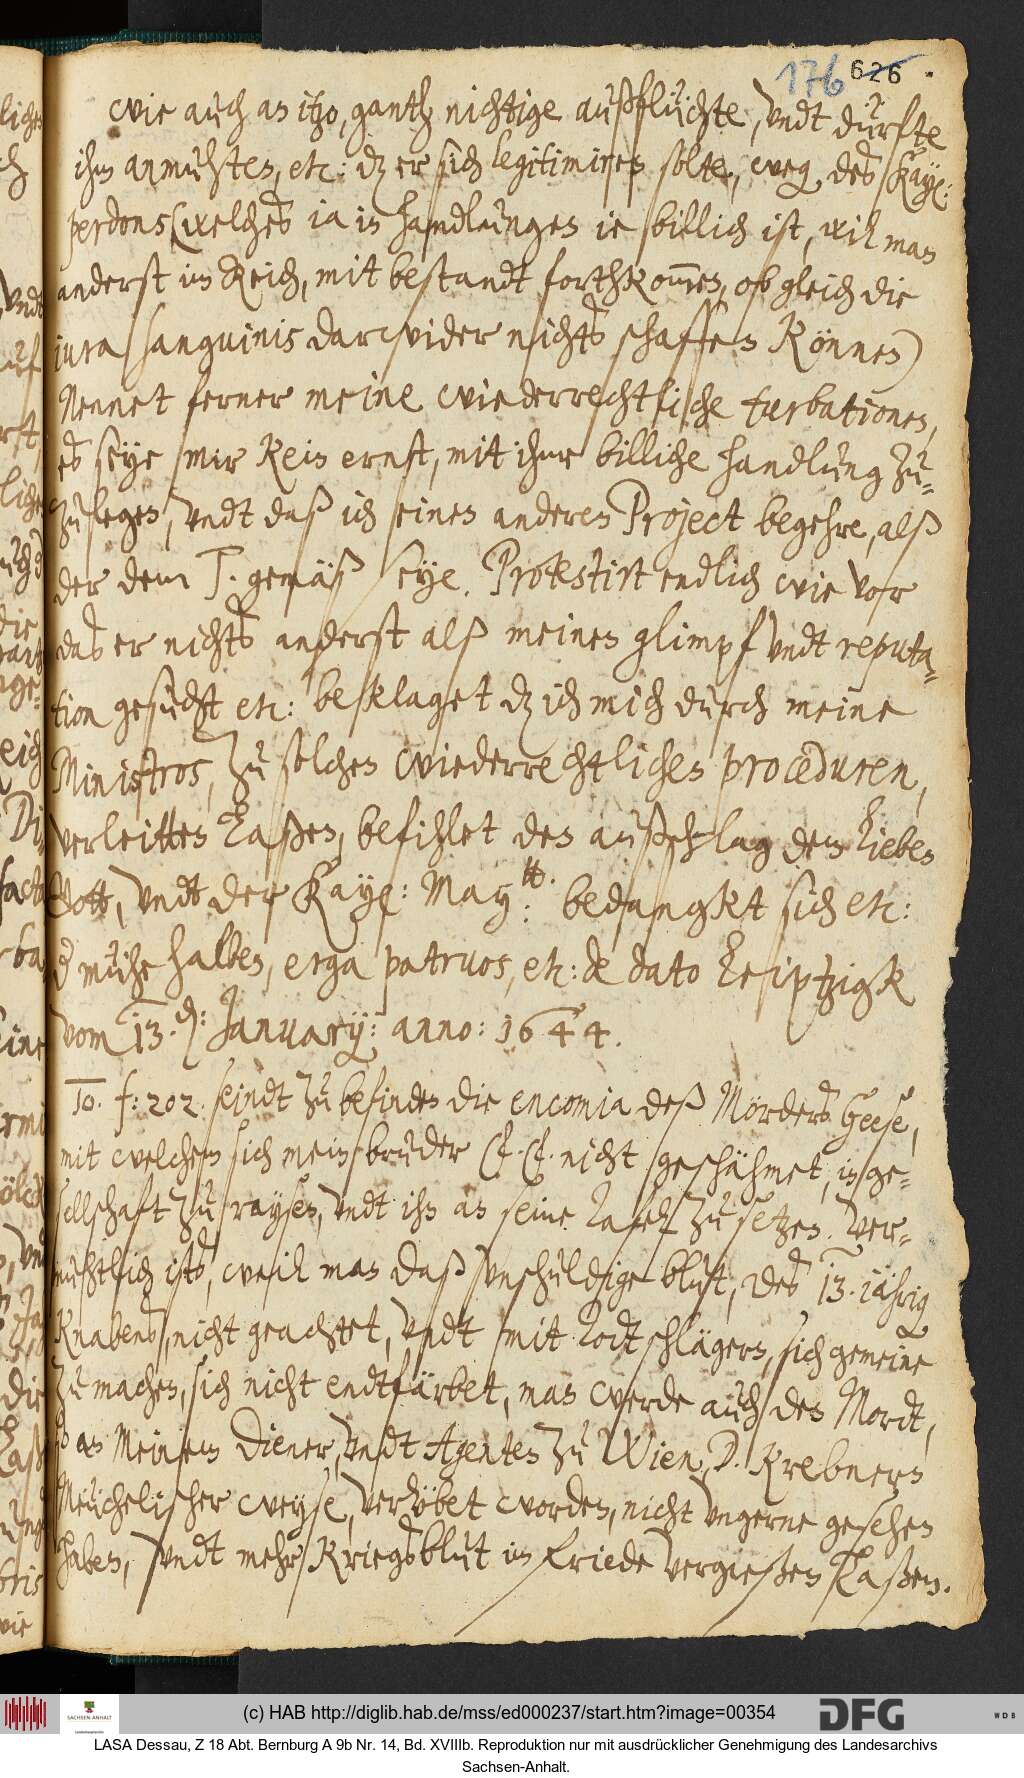 176 626
wie auch an itzo, gantz nichtige außflüchte, undt dürfte
ihm anmuhten, etc: dz er sich legitimiren solte, weg. des Kayß:
perdons (welches ia in handlungen ie billich ist, wil man
anderst im Reich, mit bestandt forthkommen, ob gleich die
iura sanguinis darwider nichts schaffen können)
Nennet ferner meine wiederrechtliche turbationes,
es seye mir kein ernst, mit ihme billiche handlung zu-
zulegen, undt daß ich einen anderen Project begehre, alß
der dem T. gemäß seye. Protestirt endlich wie vor
das er nichts anderst alß meinen glimpf undt reputa-
tion gesucht etc: beklaget dz ich mich durch meine
Ministros, zu solchen wiederrechtlichen proceduren,
verleitten laßen, befihlet den außschlag dem lieben
Gott, undt der Kayß: May:tt. bedangkt sich etc:
d mühe halben, erga patruos, etc: de dato Leiptzigk
vom 13. d: January: anno: 1644.
To. f: 202. seindt zu befinden die encomia deß Mörders Geese,
mit welchem sich mein bruder F. F. nicht geschähmet, in ge-
sellschaft zu raysen, undt ihn an seine Tafel zu setzen. Ver-
muhtlich ists, weil man daß unschuldige blut, des 13. iährig
Knabens, nicht geachtet, undt mit Todtschlägern, sich gemeine
zu machen, sich nicht endtfärbet, man werde auch den Mordt,
so an Meinem Diener, undt Agenten zu Wien, D. Krebnern
Meuchelischer weyse, verübet worden, nicht ungerne gesehen
haben, undt mehr Kriegsblut im friede vergießen laßen.
(c) HAB http://diglib.hab.de/mss/ed000237/start.htm?image=00354
SACHSEN-ANHALT
DFG
WDB
LASA Dessau, Z 18 Abt. Bernburg A 9b Nr. 14, Bd. XVIIIb. Reproduktion nur mit ausdrücklicher Genehmigung des Landesarchivs
Sachsen-Anhalt.